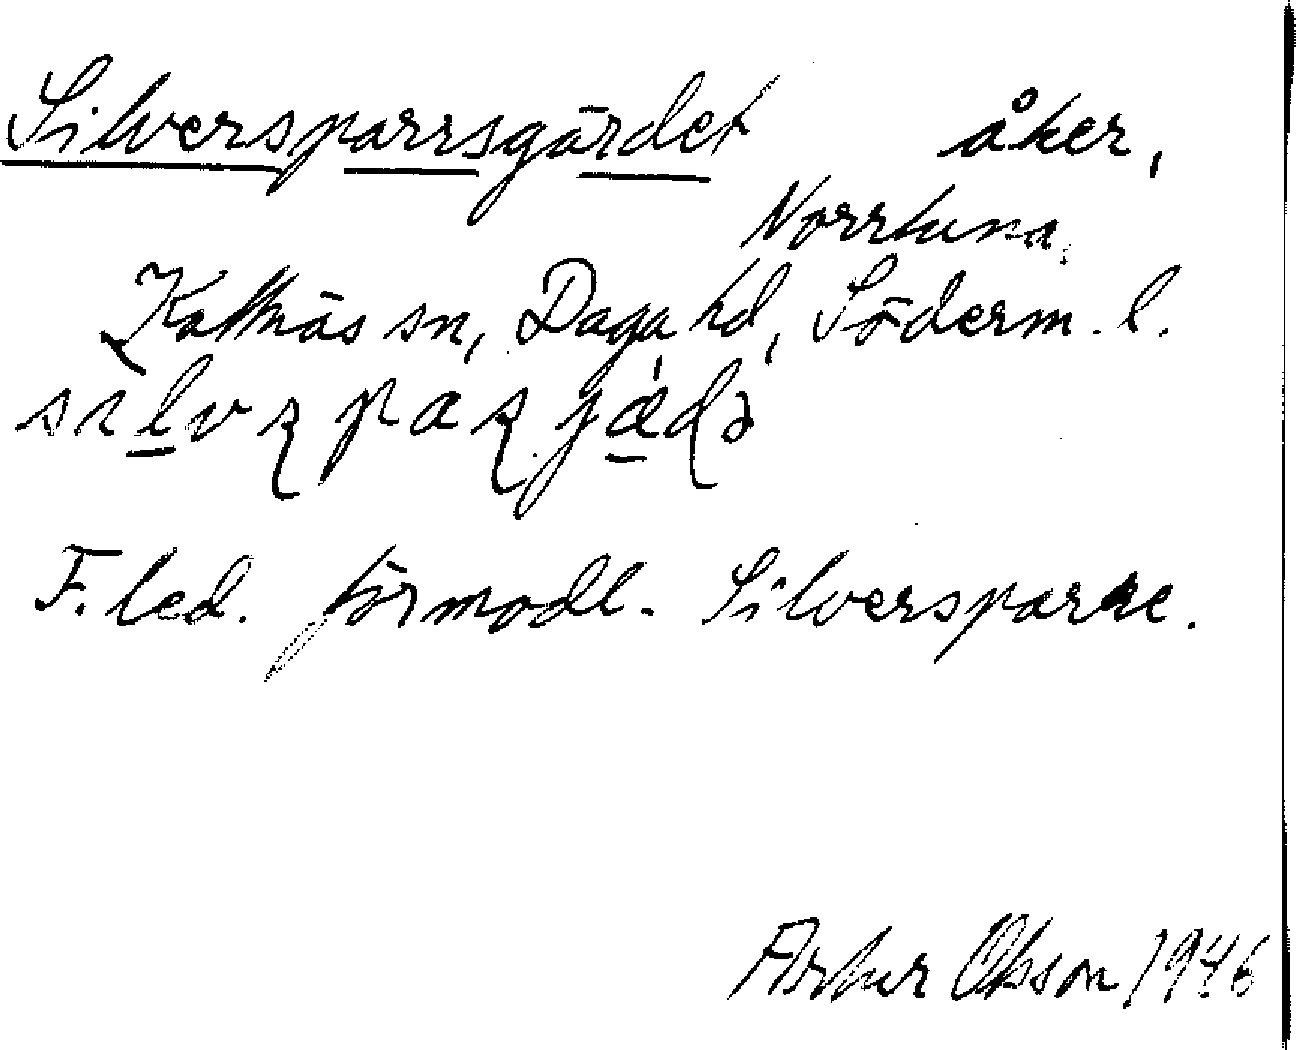 Silversparrsgärdet åker,
Norrtuna,
Kattnäs sn, Daga hd, Söderm. l.
F. led. förmodl. Silversparre.
Artur Ohson 1946